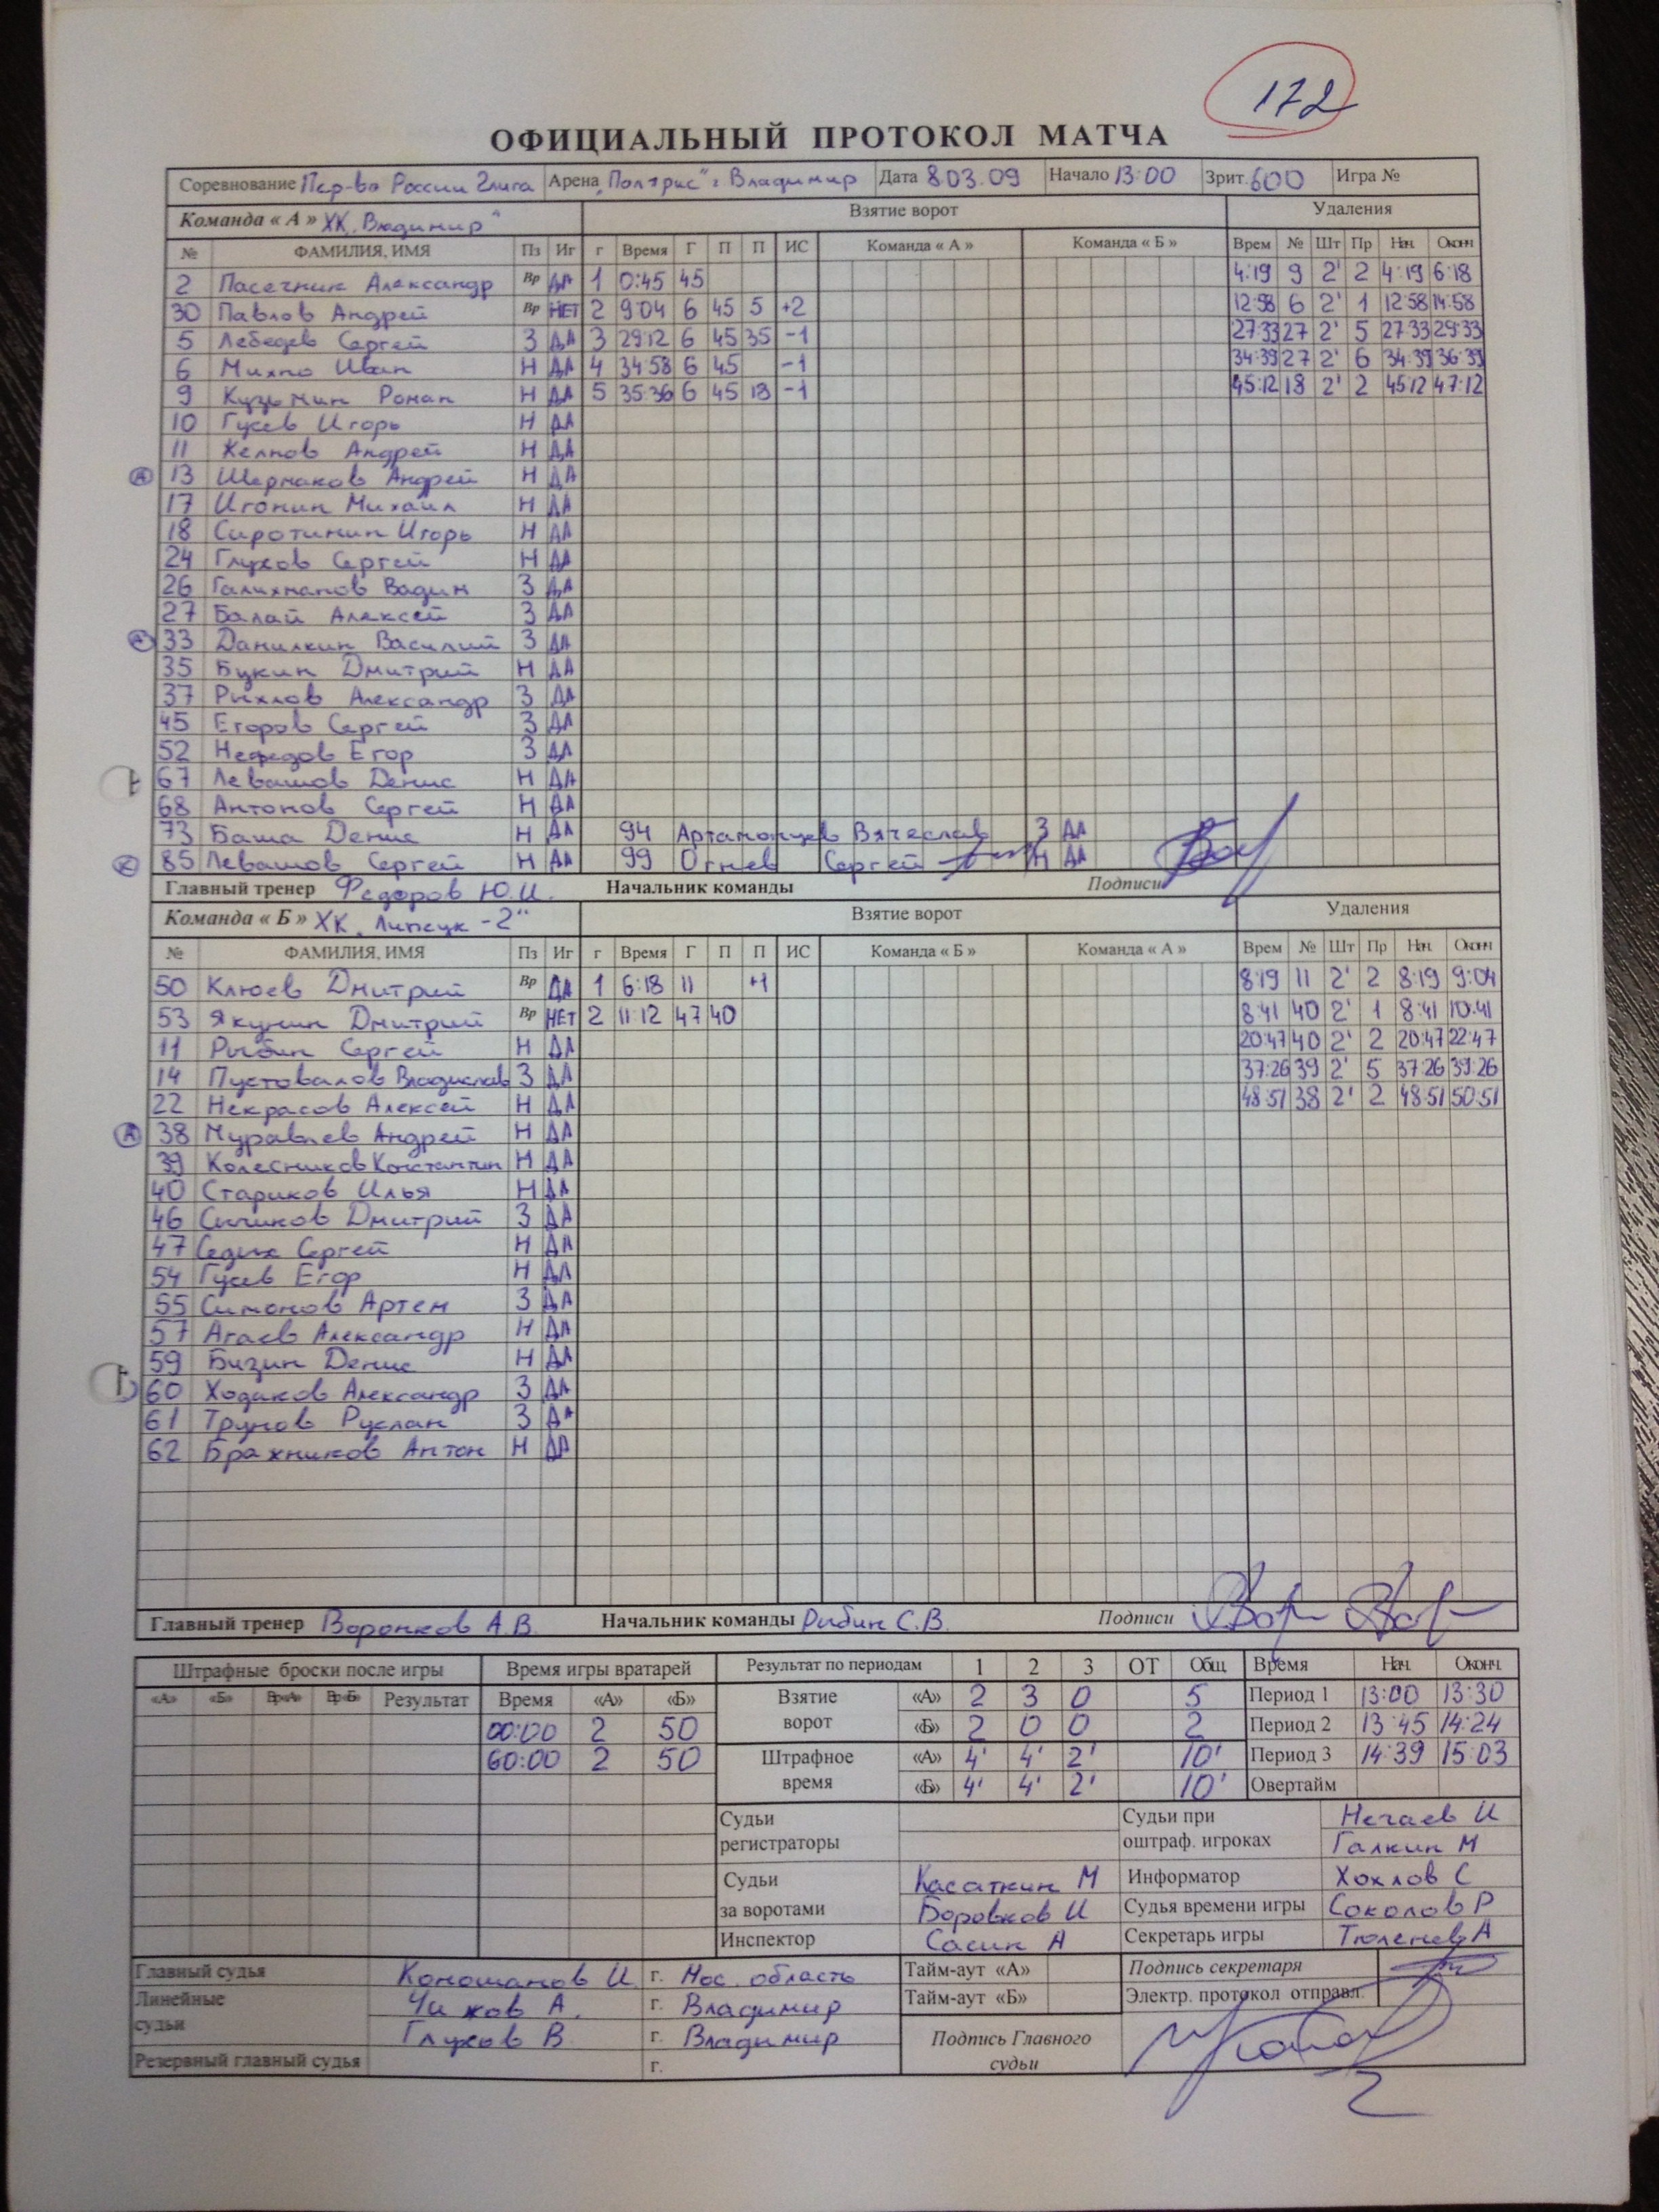 172
ОФИЦИАЛЬНЫЙ ПРОТОКОЛ МАТЧА
Соревнование Пер-во России 2лига Арена „Полярис" г. Владимир Дата 8.03.09 Начало 13:00 Зрит. 600 Игра №
Команда « А » ХК „Владимир" Взятие ворот Удаления
№ ФАМИЛИЯ, ИМЯ Пз Иг г Время Г П П ИС Команда « А » Команда « Б » Врем № Шт Пр Нач. Оконч
2 Пасечник Александр Вр ДА 1 0:45 45 4:19 9 2' 2 4:19 6:18
30 Павлов Андрей Вр НЕТ 2 9:04 6 45 5 +2 12:58 6 2' 1 12:58 14:58
5 Лебедев Сергей З ДА 3 29:12 6 45 35 -1 27:33 27 2' 5 27:33 29:33
6 Михно Иван Н ДА 4 34:58 6 45 -1 34:39 27 2' 6 34:39 36:39
9 Кузьмин Роман Н ДА 5 35:36 6 45 13 -1 45:12 18 2' 2 45:12 47:12
10 Гусев Игорь Н ДА
11 Желнов Андрей Н ДА
А 13 Шермаков Андрей Н ДА
17 Игонин Михаил Н ДА
18 Сиротинин Игорь Н ДА
24 Глухов Сергей Н ДА
26 Галихманов Вадим З ДА
27 Балай Алексей З ДА
А 33 Данилкин Василий З ДА
35 Букин Дмитрий Н ДА
37 Рыхлов Александр З ДА
45 Егоров Сергей З ДА
52 Нефедов Егор З ДА
67 Левашов Денис Н ДА
68 Антонов Сергей Н ДА
73 Баша Денис Н ДА 94 Артамонцев Вячеслав З ДА
К 85 Левашов Сергей Н ДА 99 Огнев Сергей Н ДА
Главный тренер Федоров Ю.И. Начальник команды Подписи
Команда « Б » ХК „Липецк-2" Взятие ворот Удаления
№ ФАМИЛИЯ, ИМЯ Пз Иг г Время Г П П ИС Команда « Б » Команда « А » Врем № Шт Пр Нач. Оконч
50 Клюев Дмитрий Вр ДА 1 6:18 11 +1 8:19 11 2' 2 8:19 9:04
53 Якунин Дмитрий Вр НЕТ 2 11:12 47 40 8:41 40 2' 1 8:41 10:41
11 Рыбин Сергей Н ДА 20:47 40 2' 2 20:47 22:47
14 Пустовалов Владислав З ДА 37:26 39 2' 5 37:26 39:26
22 Некрасов Алексей Н ДА 48:51 38 2' 2 48:51 50:51
А 38 Муравлев Андрей Н ДА
39 Колесников Константин Н ДА
40 Стариков Илья Н ДА
46 Сычиков Дмитрий З ДА
47 Седых Сергей Н ДА
54 Гусев Егор Н ДА
55 Симонов Артем З ДА
57 Агаев Александр Н ДА
59 Бизин Денис Н ДА
60 Ходяков Александр З ДА
61 Трунов Руслан З ДА
62 Бражников Антон Н ДА
Главный тренер Воронков А.В. Начальник команды Рыбин С.В. Подписи
Штрафные броски после игры Время игры вратарей Результат по периодам 1 2 3 ОТ Общ Время Нач. Оконч.
«А» «Б» Вр«А» Вр«Б» Результат Время «А» «Б» Взятие ворот «А» 2 3 0 5 Период 1 13:00 13:30
00:00 2 50 «Б» 2 0 0 2 Период 2 13:45 14:24
60:00 2 50 Штрафное время «А» 4' 4' 2' 10' Период 3 14:39 15:03
«Б» 4' 4' 2' 10' Овертайм
Судьи регистраторы Судьи при оштраф. игроках Нечаев И
Галкин М
Судьи за воротами Касаткин М Информатор Хохлов С
Боровков И Судья времени игры Соколов Р
Инспектор Сасин А Секретарь игры Тюленев А
Главный судья Коношанов И. г. Мос. область Тайм-аут «А» Подпись секретаря
Линейные судьи Чижов А. г. Владимир Тайм-аут «Б» Электр. протокол отправл.
Глухов В. г. Владимир Подпись Главного судьи
Резервный главный судья г.